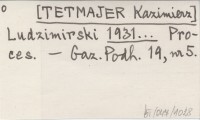 [TETMAJER Kazimierz]
Ludzimirski 1931... Pro-
ces. – Gaz. Podh. 19, nr 5.